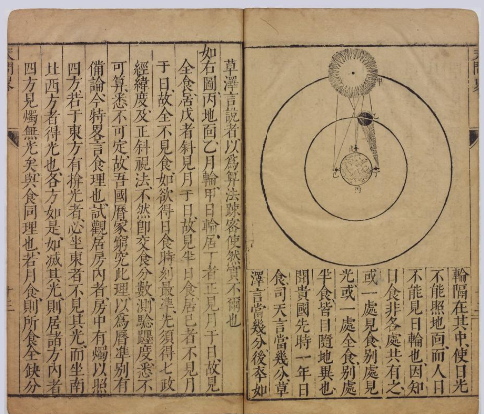 輪隔在其中使日光
不能照地面而人目
不能見日輪也因知
日食非各處共有之
或一處見食别處見
光或一處全食别處
半食皆目隨地異也
聞貴國先時一年日
食司天言當幾分草
澤言當幾分後卒如
草澤言說者以為算法疎客使然實不爾也
如右圖丙地面乙月輪甲日輪居丁者正見月于日故見
全食居戊者斜見月于日故見半日食居己者不見月
于日故全不見食如欲得日食時刻最準先須得七政
經緯度及正斜視法不然卽交食分數測驗躔度悉不
可算悉不可定故吾國曆家窮究此理以為曆準别有
備論今特畧言食理也試觀居房內者房中有燭以照
四方若于東方有掩光者必坐東者不見其光而坐南
北西方者得光也各方如是如滅其光則居諸方內者
四方見燭無光矣與食同理也若月食則所食全缺分
天問畧